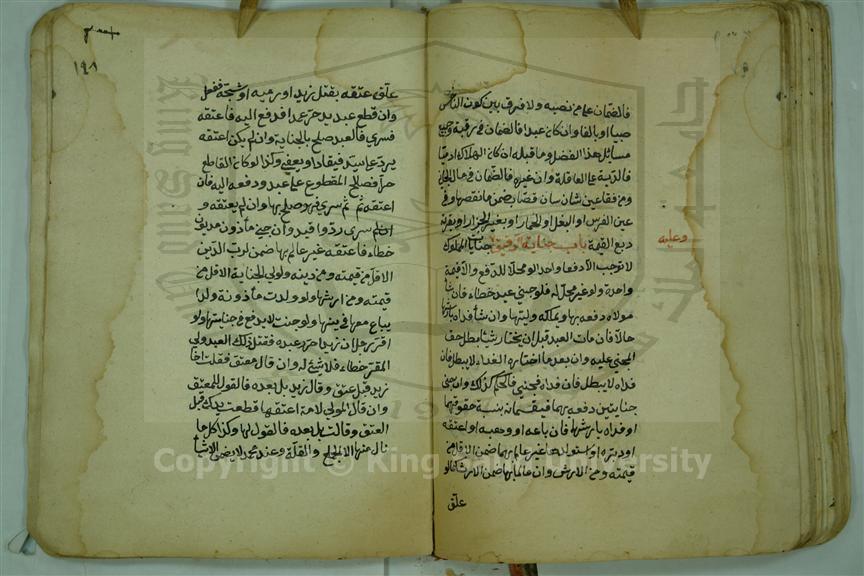 فالضمان على من نصبه ولا فرق بين كون الناخس
صبيا او بالغا وان كان عبدا فالضمان في رقبته وجميع
مسائل هذا الفصل وما قبله ان كان الهالك ادميا
فالدية على العاقلة وان غيره فالضمان في مال الجاني
ومن فقا عين شاة قصاب ضمن ما نقصها وفي
عين الفرس او البغل او الحمار او بعير الجزار او بقرته
ربع القيمة باب جناية الرقيق جناية المملوك
وعليه
لا توجب الا دفعا واحدا لو محلا للدفع والا قيمة
واحدة ولو غير محل له فلو جنى عبد خطاء فان شاء
مولاه دفعه بها ويملكه وليها وان شاء فداه بارشها
حالا فان مات العبد قبل ان يختار شيئا بطل حق
المجنى عليه وان بعد ما اختار الفداء لا يبطل فان
فداه لا يبطل فان فداه فجنى فالحكم كذلك وان جنى
جنايتين دفعه بهما فيقسمانه بنسبة حقوقهما
او فداه بارشهما فان باعه او وهبه او اعتقه
او دبره او استولدها غير عالم بها ضمن الاقل من
قيمته ومن الارش وان عالما بها ضمن الارش كما لو
علق
١٩٨
علق عتقه بقتل زيد او رميه او شجه ففعل
وان قطع عبد يد حر عمدا فدفع اليه فاعتقه
فسرى فالعبد صلح بالجناية وان لم يكن اعتقه
يرد على سيده فيقاد او يعفى وكذا لو كان القاطع
حرا فصالح المقطوع على عبد ودفعه اليه فان
اعتقه ثم سرى فهو صلح بها وان لم يعتقه و
سرى رد واقيد وان جنى مأذون مديون
خطاء فاعتقه غير عالم بها ضمن لرب الدين
الاقل من قيمته ومن دينه ولولي الجناية الاقل من
قيمته ومن ارشها ولو ولدت مأذونة ولدا
يباع معها في دينها ولو جنت لا يدفع في جنايتها ولو
اقر رجل ان زيدا حرر عبده فقتل ذلك العبد ولي
المقر خطاء فلا شيء له وان قال معتق قتلت اخا
زيد قبل عتقي وقال زيد بل بعده فالقول للمعتق
وان قال المولى لامة اعتقها قطعت يدك قبل
العتق وقالت بل بعده فالقول لها وكذا كل ما
نال منها الا الجماع والغلة وعند محمد لا يضمن الا شيأ
Copyright © King Saud University